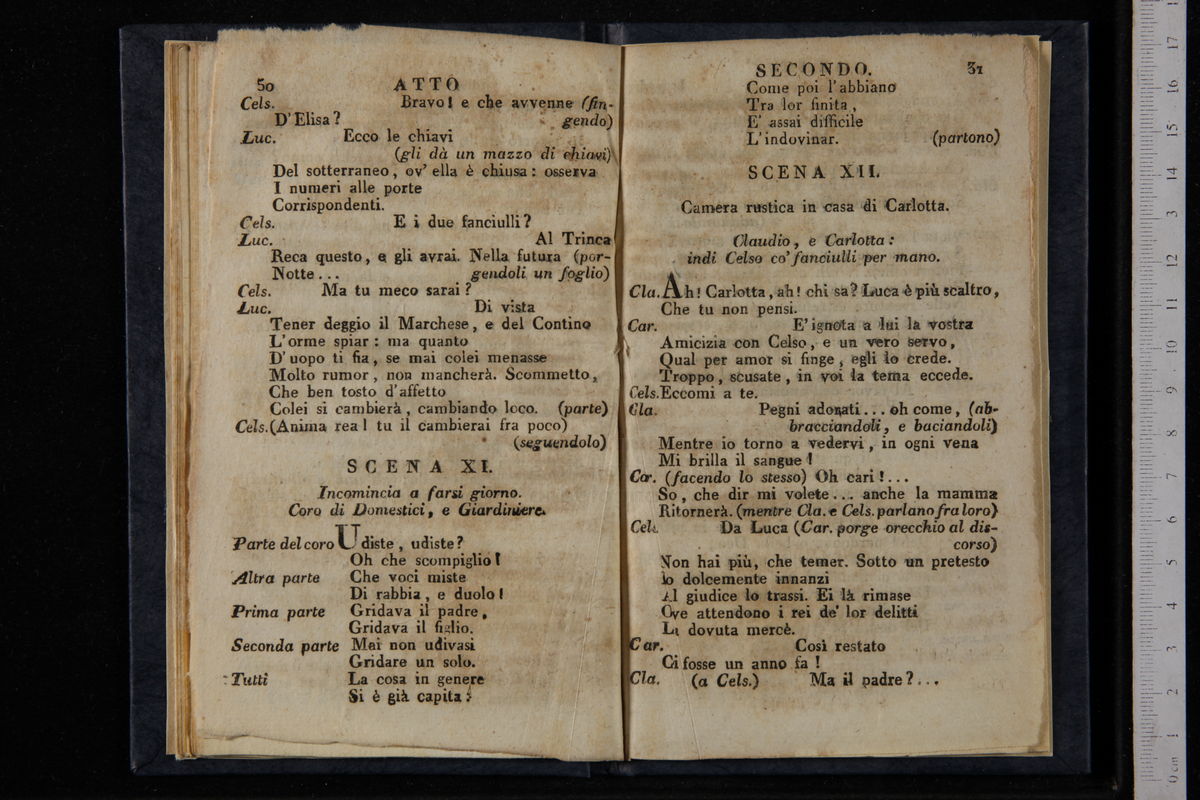 50 ATTO
Cels. Bravo! e che avvenne (fin-
D'Elisa? gendo)
Luc. Ecco le chiavi
(gli dà un mazzo di chiavi)
Del sotterraneo, ov' ella è chiusa: osserva
I numeri alle porte
Corrispondenti.
Cels. E i due fanciulli?
Luc. Al Trinca
Reca questo, e gli avrai. Nella futura (por-
Notte... gendoli un foglio)
Cels. Ma tu meco sarai?
Luc. Di vista
Tener deggio il Marchese, e del Contino
L'orme spiar: ma quanto
D'uopo ti fia, se mai colei menasse
Molto rumor, non mancherà. Scommetto,
Che ben tosto d'affetto
Colei si cambierà, cambiando loco. (parte)
Cels. (Anima rea! tu il cambierai fra poco)
(seguendolo)
SCENA XI.
Incomincia a farsi giorno.
Coro di Domestici, e Giardiniere.
Parte del coro Udiste, udiste?
Oh che scompiglio!
Altra parte Che voci miste
Di rabbia, e duolo!
Prima parte Gridava il padre,
Gridava il figlio.
Seconda parte Mai non udivasi
Gridare un solo.
Tutti La cosa in genere
Si è già capita:
SECONDO. 31
Come poi l'abbiano
Tra lor finita,
E' assai difficile
L'indovinar. (partono)
SCENA XII.
Camera rustica in casa di Carlotta.
Claudio, e Carlotta:
indi Celso co' fanciulli per mano.
Cla. Ah! Carlotta, ah! chi sa? Luca è più scaltro,
Che tu non pensi.
Car. E' ignota a lui la vostra
Amicizia con Celso, e un vero servo,
Qual per amor si finge, egli lo crede.
Troppo, scusate, in voi la tema eccede.
Cels. Eccomi a te.
Cla. Pegni adorati... oh come, (ab-
bracciandoli, e baciandoli)
Mentre io torno a vedervi, in ogni vena
Mi brilla il sangue!
Car. (facendo lo stesso) Oh cari!...
So, che dir mi volete... anche la mamma
Ritornerà. (mentre Cla. e Cels. parlano fra loro)
Cels. Da Luca (Car. porge orecchio al dis-
corso)
Non hai più, che temer. Sotto un pretesto
Io dolcemente innanzi
Al giudice lo trassi. Ei là rimase
Ove attendono i rei de' lor delitti
La dovuta mercè.
Car. Così restato
Ci fosse un anno fa!
Cla. (a Cels.) Ma il padre?...